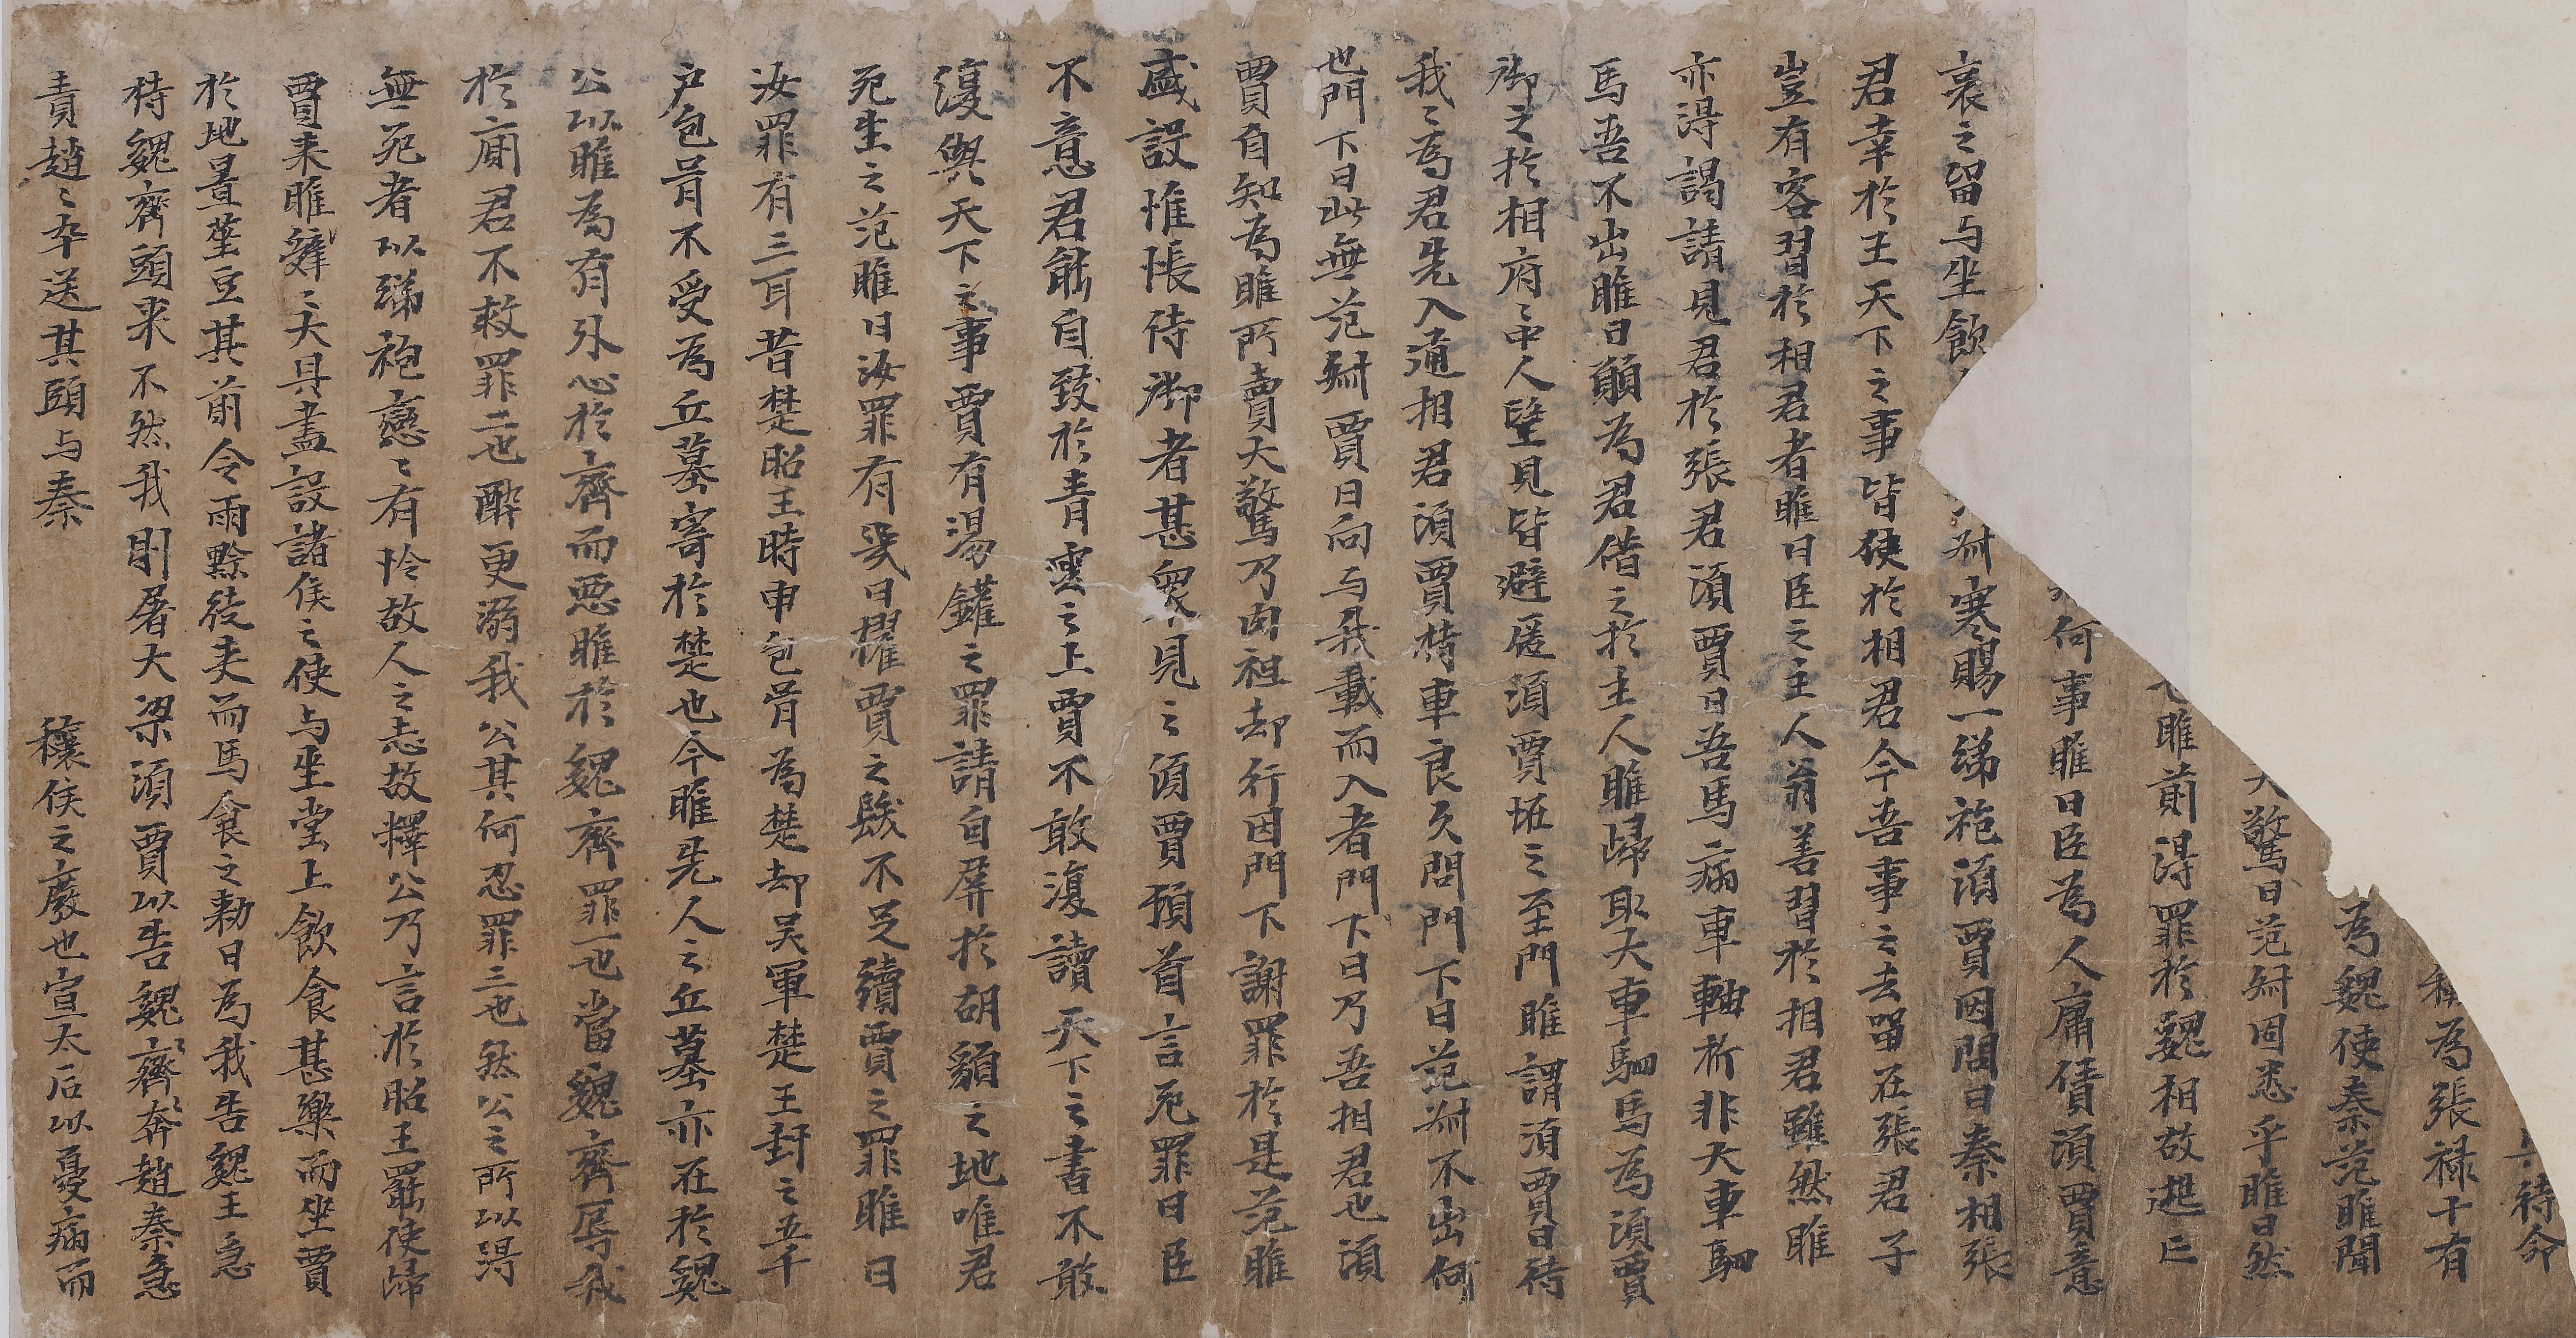 待命
為張禄十有
為魏使秦范睢聞
大驚曰范叔固恙乎睢曰然
睢前得罪於魏相故逃亡
何事睢曰臣為人庸債須賈意
哀之留与坐飲叔寒賜一綈袍須賈因問曰秦相張
君幸於王天下之事皆使於相君今吾事之去留在張君子
豈有客習於相君者睢曰臣之主人翁善習於相君雖然睢
亦得謁請見君於張君須賈曰吾馬病車軸折非大車駟
馬吾不出睢曰願為君借之於主人睢歸取大車駟馬為須賈
御之於相府〻中人望見皆避匿須賈怪之至門睢謂須賈曰待
我〻為君先入通相君須賈待車良久問門下曰范叔不出何
也門下曰此無范叔賈曰向与我載而入者門下曰乃吾相君也須
賈自知為睢所賣大驚乃肉袒却行因門下謝罪於是范睢
盛設惟帳待御者甚衆見之須賈頓首言死罪曰臣
不意君能自致於青雲之上賈不敢復讀天下之書不敢
復與天下之事賈有湯鑊之罪請自屏於胡貉之地唯君
死生之范睢曰汝罪有幾曰擢賈之髮不足續賈之罪睢曰
汝罪有三耳昔楚昭王時申包胥為楚却吳軍楚王封之五千
户包胥不受為丘墓寄於楚也今睢先人之丘墓亦在於魏
公以睢為有外心於齊而惡睢於魏齊罪一也當魏齊辱我
於廁君不救罪二也醉更溺我公其何忍罪三也然公之所以得
無死者以綈袍戀〻有怜故人之志故釋公乃言於昭王罷使歸
賈来睢辤〻大具盡設諸侯之使与坐堂上飲食甚樂而坐賈
於地置莝豆其前令兩黥徒夾而馬食之勑曰為我告魏王急
持魏齊頭来不然我則屠大梁須賈以告魏齊〻奔趙秦急
責趙〻卒送其頭与秦 穰侯之廢也宣太后以憂病而